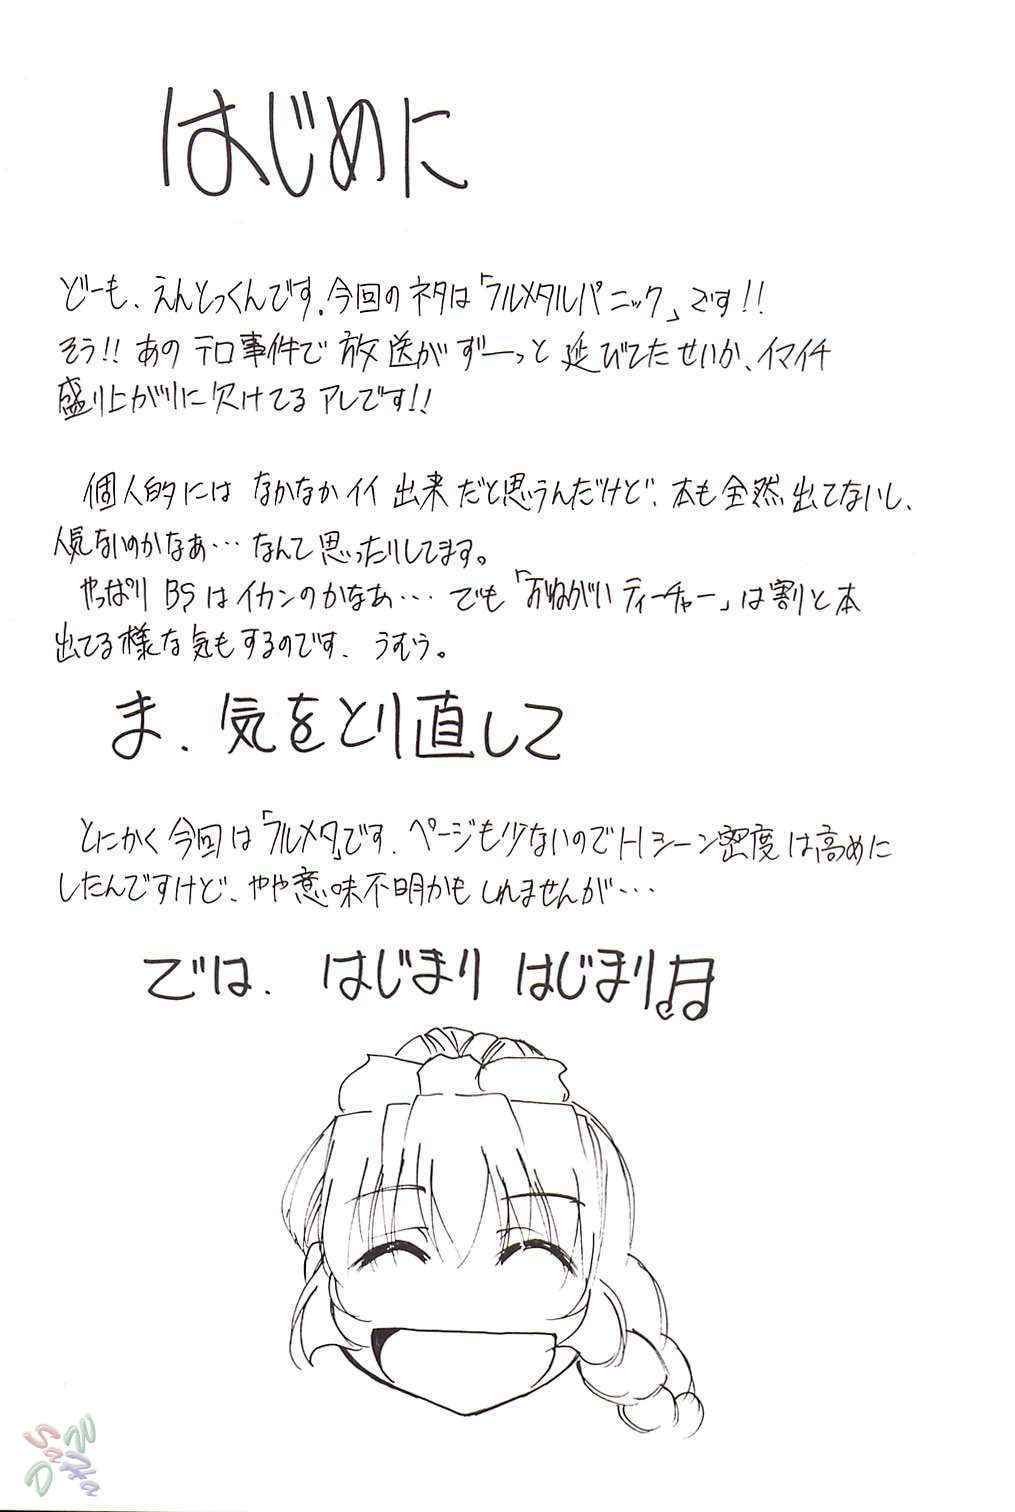 はじめに
どーも、えんとっくんです。今回のネタは「フルメタルパニック」です!!
そう!! あのテロ事件で放送がずーっと延びてたせいか、イマイチ
盛り上がりに欠けてるアレです!!
個人的にはなかなかイイ出来だと思うんだけど、本も全然出てないし、
人気ないのかなぁ…なんて思ったりしてます。
やっぱりBSはイカンのかなあ…でも「おねがいティーチャー」は割と本
出てる様な気もするのです、うむう。
ま、気をとり直して
とにかく今回は「フルメタ」です、ページも少ないのでHシーン密度は高めに
したんですけど、やや意味不明かもしれませんが…
では、はじまりはじまり♫